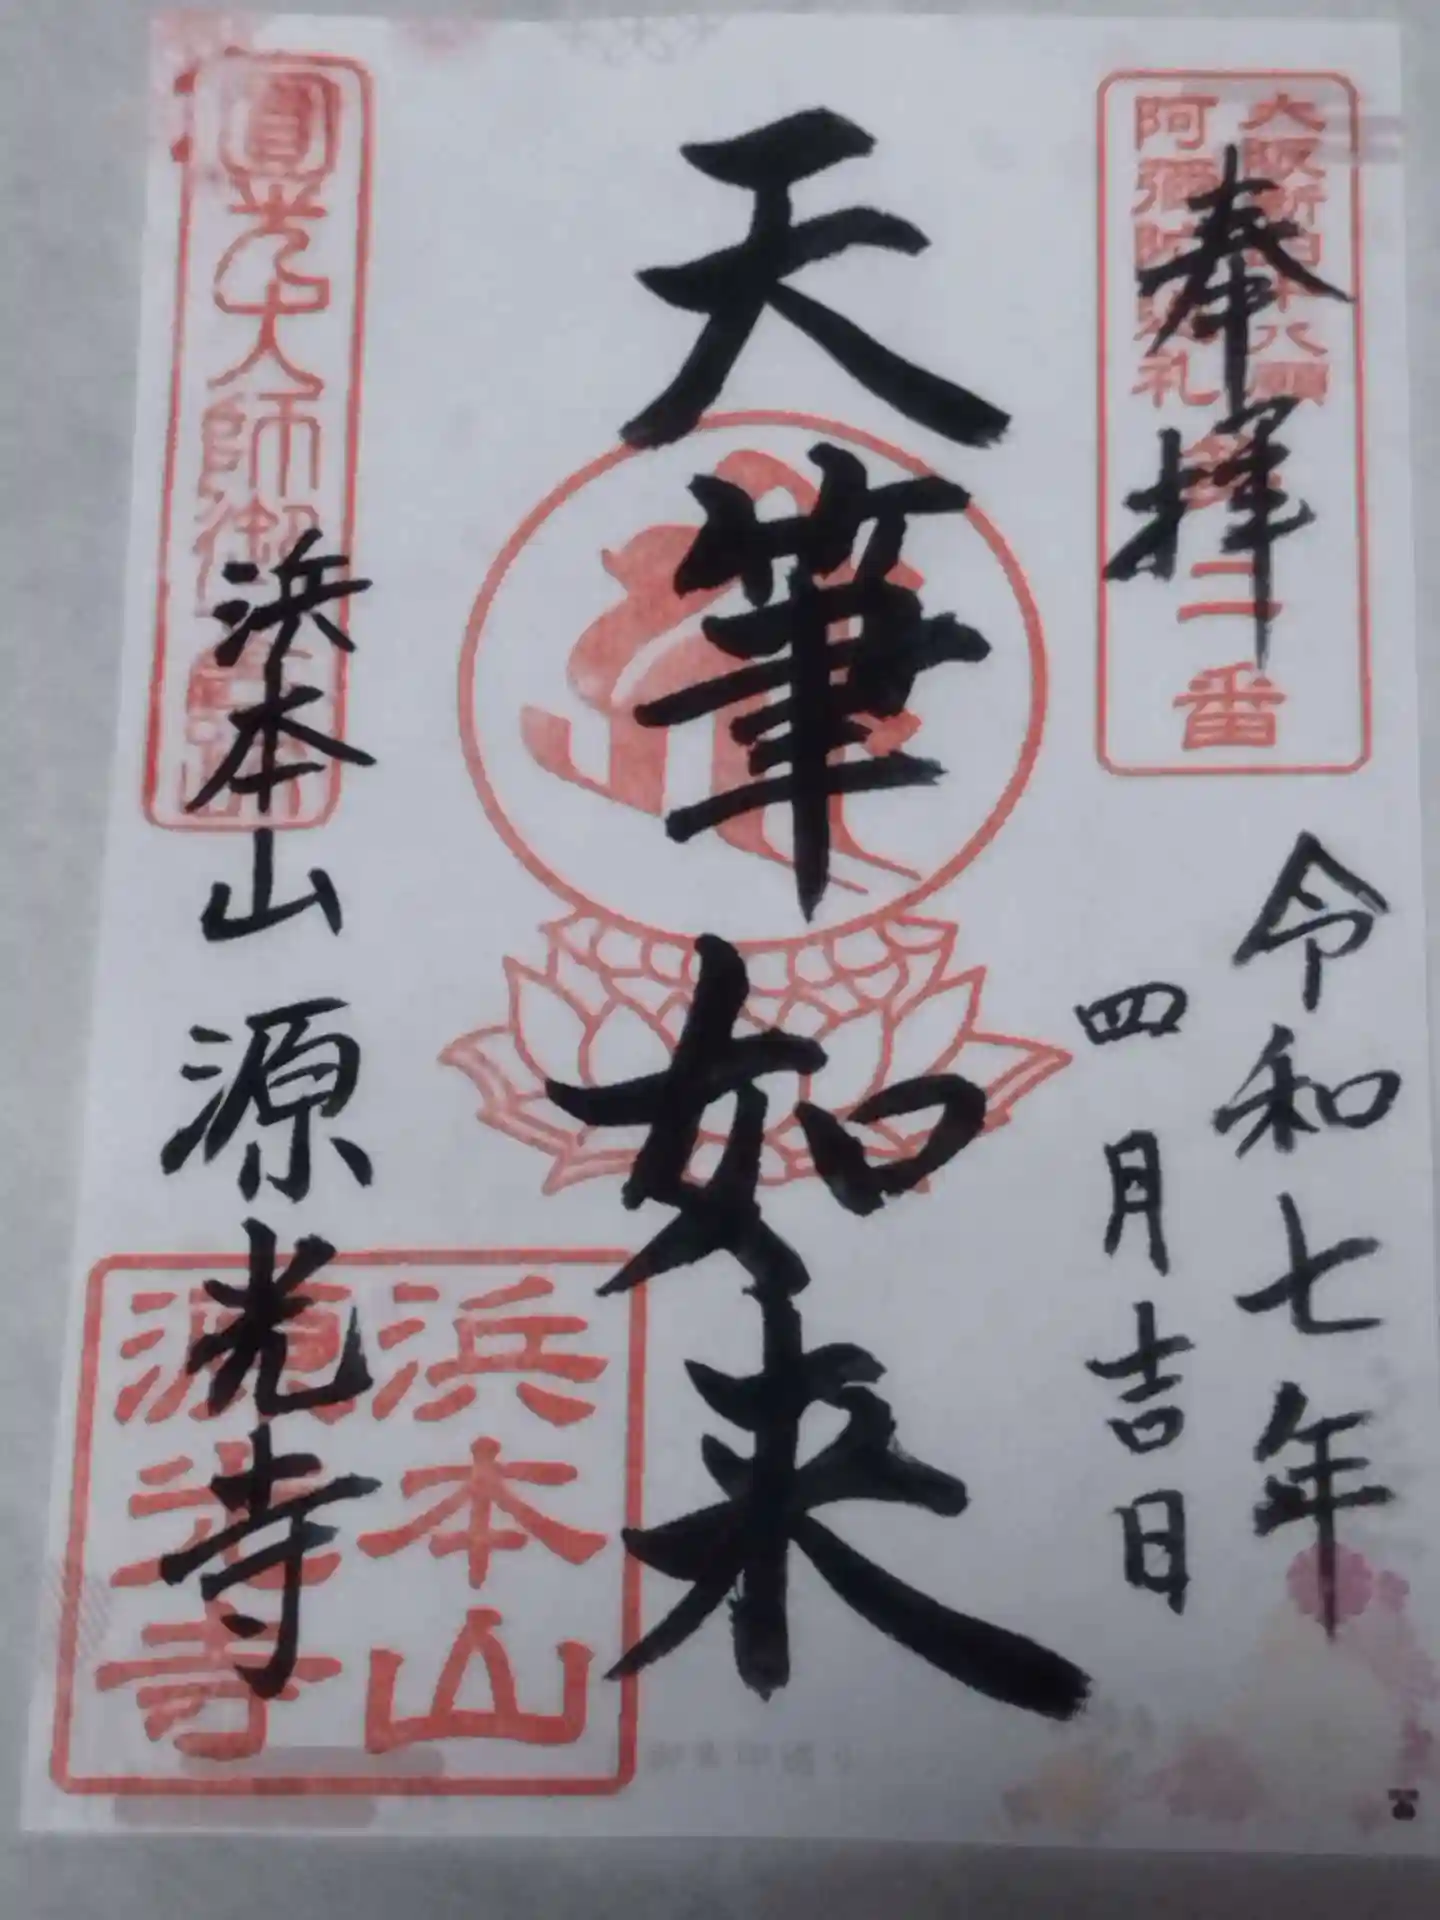 奉拝
大阪新四十八願
阿彌陀巡礼
第二番
令和七年
四月吉日
天筆如来
圓光大師御
浜本山
源光寺
浜本山
源光寺